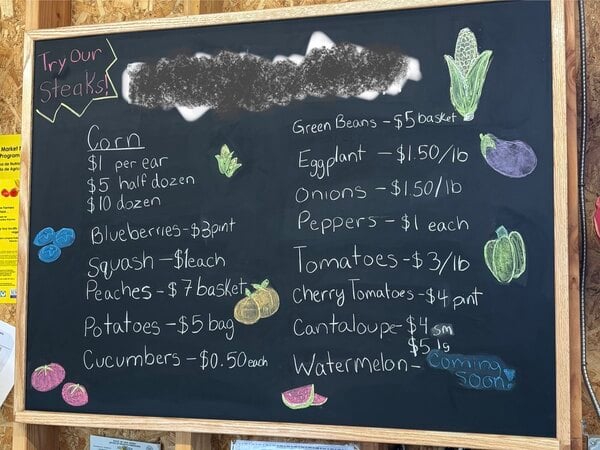 Try Our
Steaks!
Corn
$1 per ear
$5 half dozen
$10 dozen
Blueberries - $3 pint
Squash - $1 each
Peaches - $7 basket
Potatoes - $5 bag
Cucumbers - $0.50 each
Green Beans - $5 basket
Eggplant - $1.50/lb
Onions - $1.50/lb
Peppers - $1 each
Tomatoes - $3/lb
Cherry Tomatoes - $4 pint
Cantaloupe - $4 sm
$5 lg
Watermelon - Coming
Soon!
Market
Program